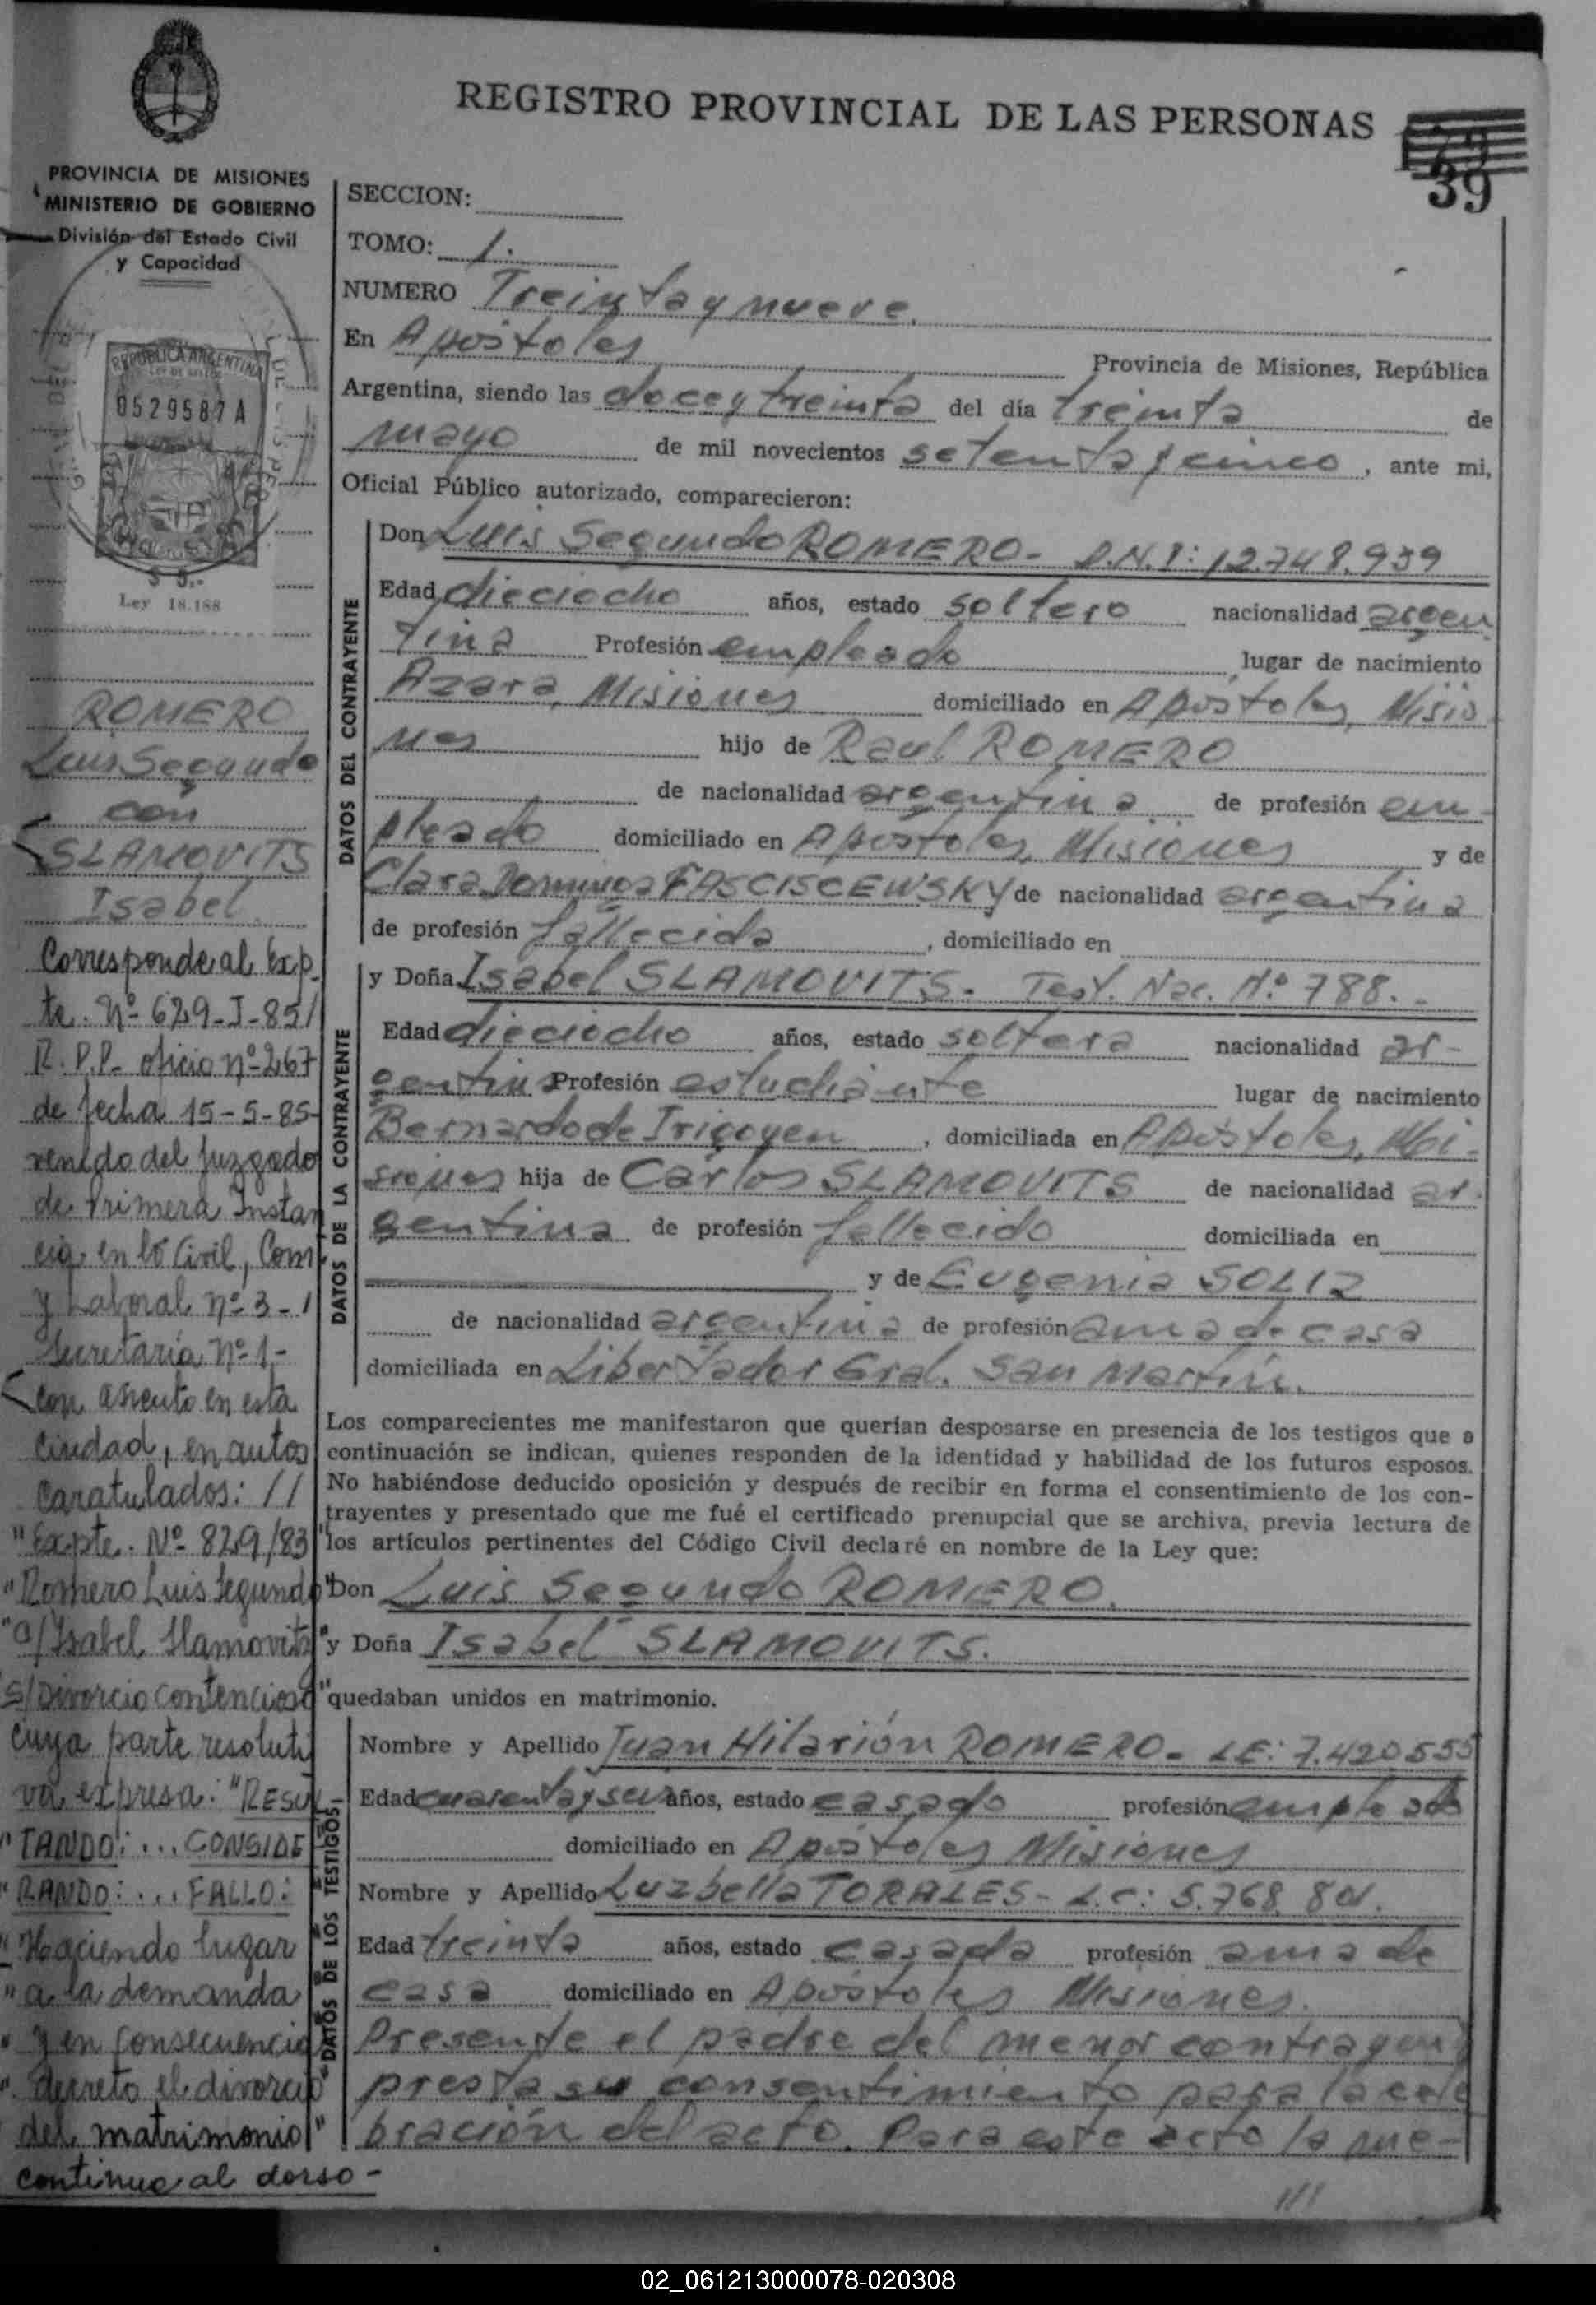 REGISTRO PROVINCIAL DE LAS PERSONAS
39
PROVINCIA DE MISIONES
MINISTERIO DE GOBIERNO
División del Estado Civil
y Capacidad
REPUBLICA ARGENTINA
LEY DE SELLOS
0529587A
$ 5.-
Ley 18.188
ROMERO
Luis Segundo
con
SLAMOVITS
Isabel
Corresponde al Exp
te. Nº 629-J-85/
R.P.P. oficio nº 267
de fecha 15-5-85-
venido del Juzgado
de Primera Instan
cia en lo Civil, Com
y Laboral nº 3-1
Secretaría nº 1.-
con asiento en esta
ciudad, en autos
caratulados: //
"Expte. Nº 829/83"
"Romero Luis Segundo"
"c/Isabel Slamovits"
s/Divorcio contencioso"
cuya parte resoluti
va expresa: "RESUL
"TANDO:... CONSIDE
"RANDO:... FALLO:
"Haciendo lugar
"a la demanda
"y en consecuencia
"decreto el divorcio"
del matrimonio"
continua al dorso-
SECCION:
TOMO: 1.
NUMERO Treinta y nueve.
En Apóstoles Provincia de Misiones, República
Argentina, siendo las doce y treinta del día treinta de
mayo de mil novecientos setenta y cinco, ante mi,
Oficial Público autorizado, comparecieron:
DATOS DEL CONTRAYENTE
Don Luis Segundo ROMERO- D.N.I: 12.748.939
Edad dieciocho años, estado soltero nacionalidad argen
tina Profesión empleado, lugar de nacimiento
Azara, Misiones domiciliado en Apóstoles, Misio
nes hijo de Raul ROMERO
de nacionalidad argentina de profesión em-
pleado domiciliado en Apóstoles, Misiones y de
Clara Dominga FASCISCEWSKY de nacionalidad argentina
de profesión fallecida, domiciliado en
DATOS DE LA CONTRAYENTE
y Doña Isabel SLAMOVITS. Test. Nac. N.º 788.-
Edad dieciocho años, estado soltera nacionalidad ar-
gentina Profesión estudiante lugar de nacimiento
Bernardo de Irigoyen, domiciliada en Apóstoles, Mi-
siones hija de Carlos SLAMOVITS de nacionalidad ar-
gentina de profesión fallecido domiciliada en
y de Eugenia SOLIZ
de nacionalidad argentina de profesión ama de casa
domiciliada en Libertador Gral. San Martín.
Los comparecientes me manifestaron que querían desposarse en presencia de los testigos que a
continuación se indican, quienes responden de la identidad y habilidad de los futuros esposos.
No habiéndose deducido oposición y después de recibir en forma el consentimiento de los con-
trayentes y presentado que me fué el certificado prenupcial que se archiva, previa lectura de
los artículos pertinentes del Código Civil declaré en nombre de la Ley que:
Don Luis Segundo ROMERO.
y Doña Isabel SLAMOVITS.
quedaban unidos en matrimonio.
DATOS DE LOS TESTIGOS
Nombre y Apellido Juan Hilarión ROMERO- LE: 7.420.555
Edad cuarenta y seis años, estado casado profesión empleado
domiciliado en Apóstoles Misiones
Nombre y Apellido Luzbella TORALES- L.C: 5.768.
Edad treinta años, estado casada profesión ama de
casa domiciliado en Apóstoles Misiones.
Presente el padre del menor contrayen
presta su consentimiento para la cele
bración del acto. Para este acto la me-
///
02_061213000078-020308